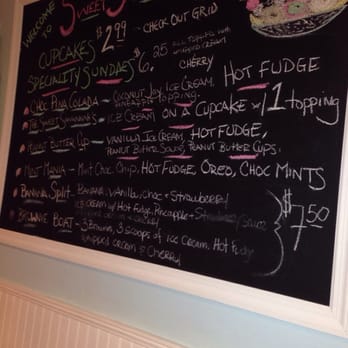 WELCOME TO
SWEET
CUPCAKES $2.99 - CHECK OUT GRID
SPECIALTY SUNDAES $6.25 ALL TOPPED WITH WHIPPED CREAM
CHERRY
CHOC PINA COLADA - COCONUT JOY ICE CREAM, HOT FUDGE
PINEAPPLE TOPPING
ICE CREAM ON A CUPCAKE w/ 1 topping
PEANUT BUTTER CUP - VANILLA ICE CREAM, HOT FUDGE,
PEANUT BUTTER SAUCE, PEANUT BUTTER CUPS.
MINT MANIA - Mint Choc Chip, HOT FUDGE, OREO, CHOC MINTS
BANANA SPLIT - BANANA, Vanilla, Choc + Strawberry
ICE CREAM w/ Hot Fudge, Pineapple + Strawberry Sauce
$7.50
BROWNIE BOAT - 3 Browns, 3 scoops of ice cream, Hot Fudge
whipped cream & Cherry